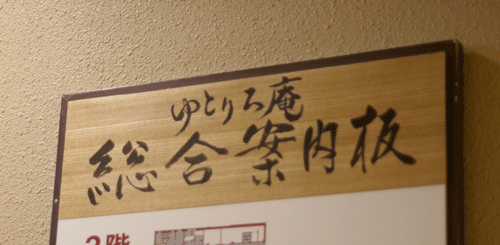 ゆとりろ庵
総合案内板
2階